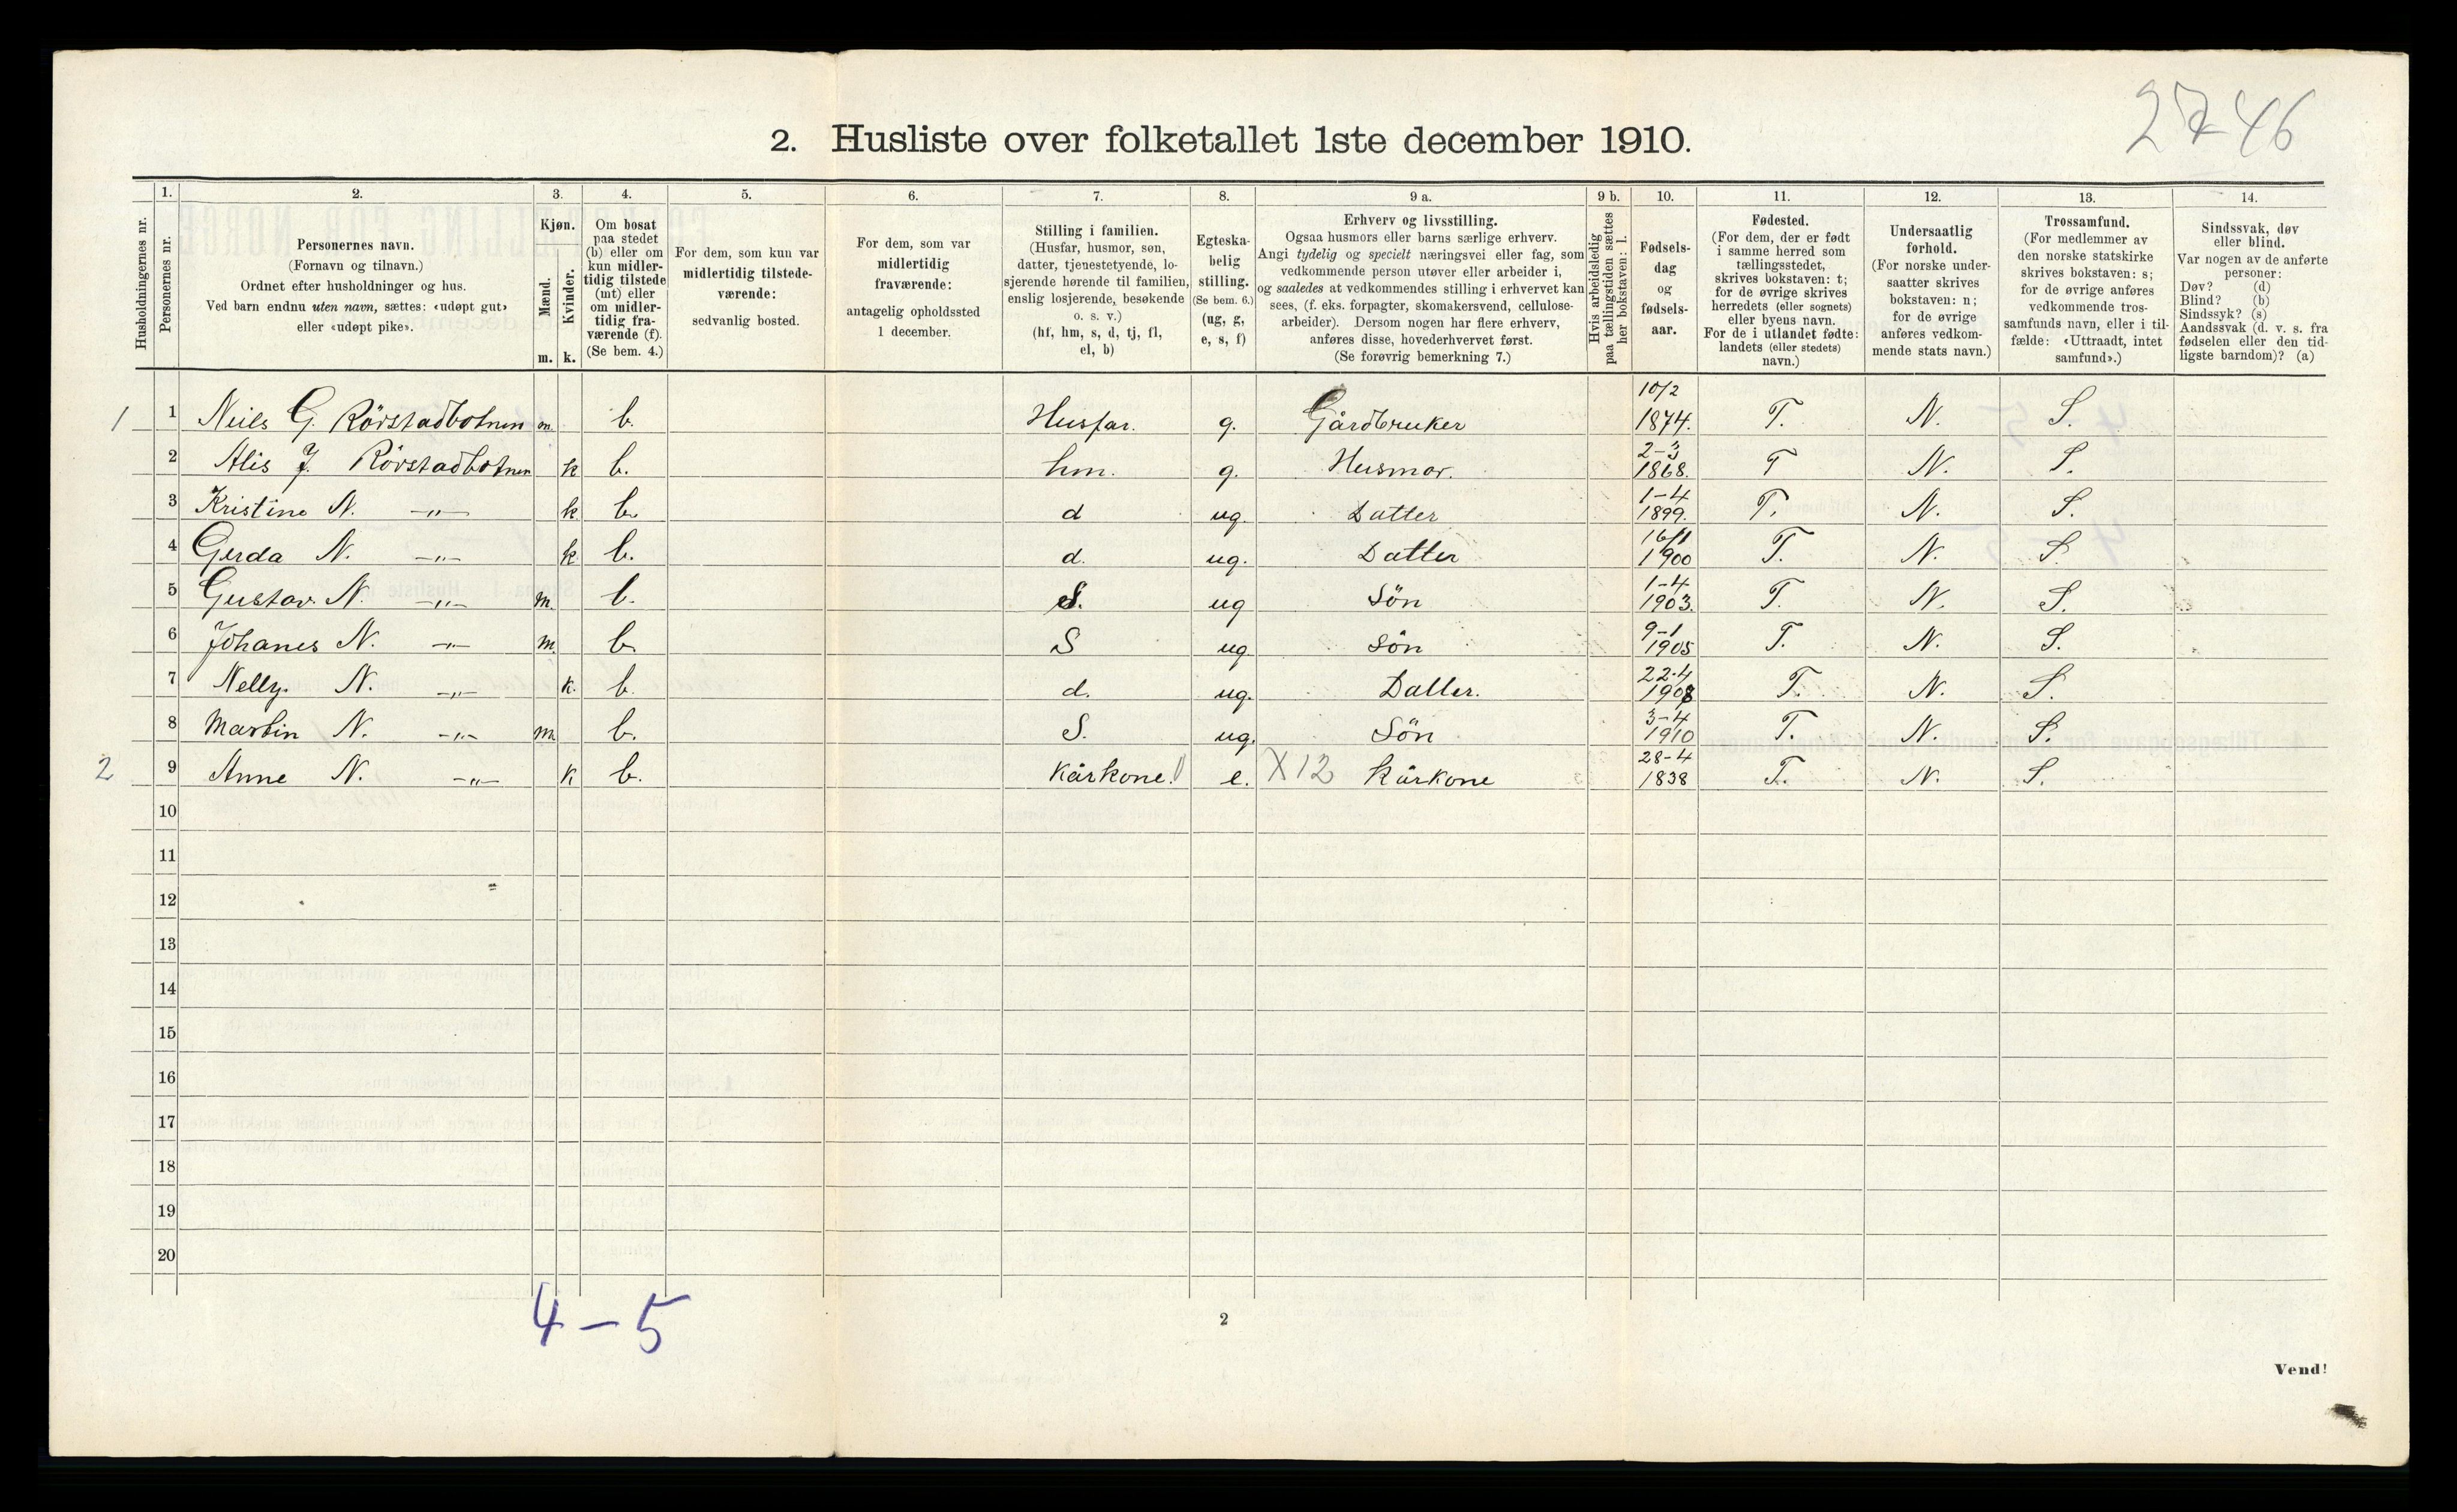 27-46
2. Husliste over folketallet 1ste december 1910.
Husholdningernes nr.
1.
Personernes nr.
2.
Personernes navn.
(Fornavn og tilnavn.)
Ordnet efter husholdninger og hus.
Ved barn endnu uten navn, sættes: «udøpt gut»
eller «udøpt pike».
3.
Kjøn.
Mænd.
Kvinder.
m. k.
4.
Om bosat
paa stedet
(b) eller om
kun midler-
tidig tilstede
(mt) eller
om midler-
tidig fra-
værende (f).
(Se bem. 4.)
5.
For dem, som kun var
midlertidig tilstede-
værende:
sedvanlig bosted.
6.
For dem, som var
midlertidig
fraværende:
antagelig opholdssted
1 december.
7.
Stilling i familien.
(Husfar, husmor, søn,
datter, tjenestetyende, lo-
sjerende hørende til familien,
enslig losjerende, besøkende
o. s. v.)
(hf, hm, s, d, tj, fl,
el, b)
8.
Egteska-
belig
stilling.
(Se bem. 6.)
(ug, g,
e, s, f)
9 a.
Erhverv og livsstilling.
Ogsaa husmors eller barns særlige erhverv.
Angi tydelig og specielt næringsvei eller fag, som
vedkommende person utøver eller arbeider i,
og saaledes at vedkommendes stilling i erhvervet kan
sees, (f. eks. forpagter, skomakersvend, cellulose-
arbeider). Dersom nogen har flere erhverv,
anføres disse, hovederhvervet først.
(Se forøvrig bemerkning 7.)
9 b.
Hvis arbeidsledig
paa tællingstiden sættes
her bokstaven: l.
10.
Fødsels-
dag
og
fødsels-
aar.
11.
Fødested.
(For dem, der er født
i samme herred som
tællingsstedet,
skrives bokstaven: t;
for de øvrige skrives
herredets (eller sognets)
eller byens navn.
For de i utlandet fødte:
landets (eller stedets)
navn.)
12.
Undersaatlig
forhold.
(For norske under-
saatter skrives
bokstaven: n;
for de øvrige
anføres vedkom-
mende stats navn.)
13.
Trossamfund.
(For medlemmer av
den norske statskirke
skrives bokstaven: s;
for de øvrige anføres
vedkommende tros-
samfunds navn, eller i til-
fælde: «Uttraadt, intet
samfund».)
14.
Sindssvak, døv
eller blind.
Var nogen av de anførte
personer:
Døv? (d)
Blind? (b)
Sindssyk? (s)
Aandssvak (d. v. s. fra
fødselen eller den tid-
ligste barndom)? (a)
1 1 Neils G. Rörstadbotnen m. b. Husfar. g. Gårdbruker 10/2 1874. T. N. S.
2 Alis J. Rörstadbotnen k b. hm. g. Husmor. 2-3 1868. T N. S.
3 Kristine N. -"- k. b. d ug. Datter 1-4 1899. T. N. S.
4 Gerda N. -"- k. b. d. ug. Datter 16/1 1900 T. N. S.
5 Gustav. N. -"- m. b. S. ug Sön 1-4 1903. T. N. S.
6 Johanes N. -"- m. b. S ug. Sön 9-1 1905 T. N. S.
7 Nelly. N. -"- k. b. d. ug. Datter. 22-4 1908 T. N. S.
8 Martin N. -"- m. b. S. ug. Sön 3-4 1910 T. N. S.
2 9 Anne N. -"- k b. Kårkone. e. X12 Kårkone 28-4 1838 T. N. S.
10
11
12
13
14
15
16
17
18
19
20
4-5
2
Vend!